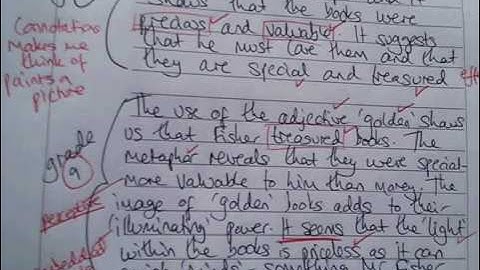 shows that the books were
precious and valuable. It suggests
that he must love them and that
they are special and treasured
Connotations
Makes me
think of
paints a
picture
The use of the adjective 'golden' shows
us that Fisher treasured books. The
metaphor reveals that they were special-
more valuable to him than money. The
image of 'golden' books adds to their
'illuminating' power. It seems that the 'light'
within the books is priceless as it can
grade
9
perceptive
something Mr Fisher